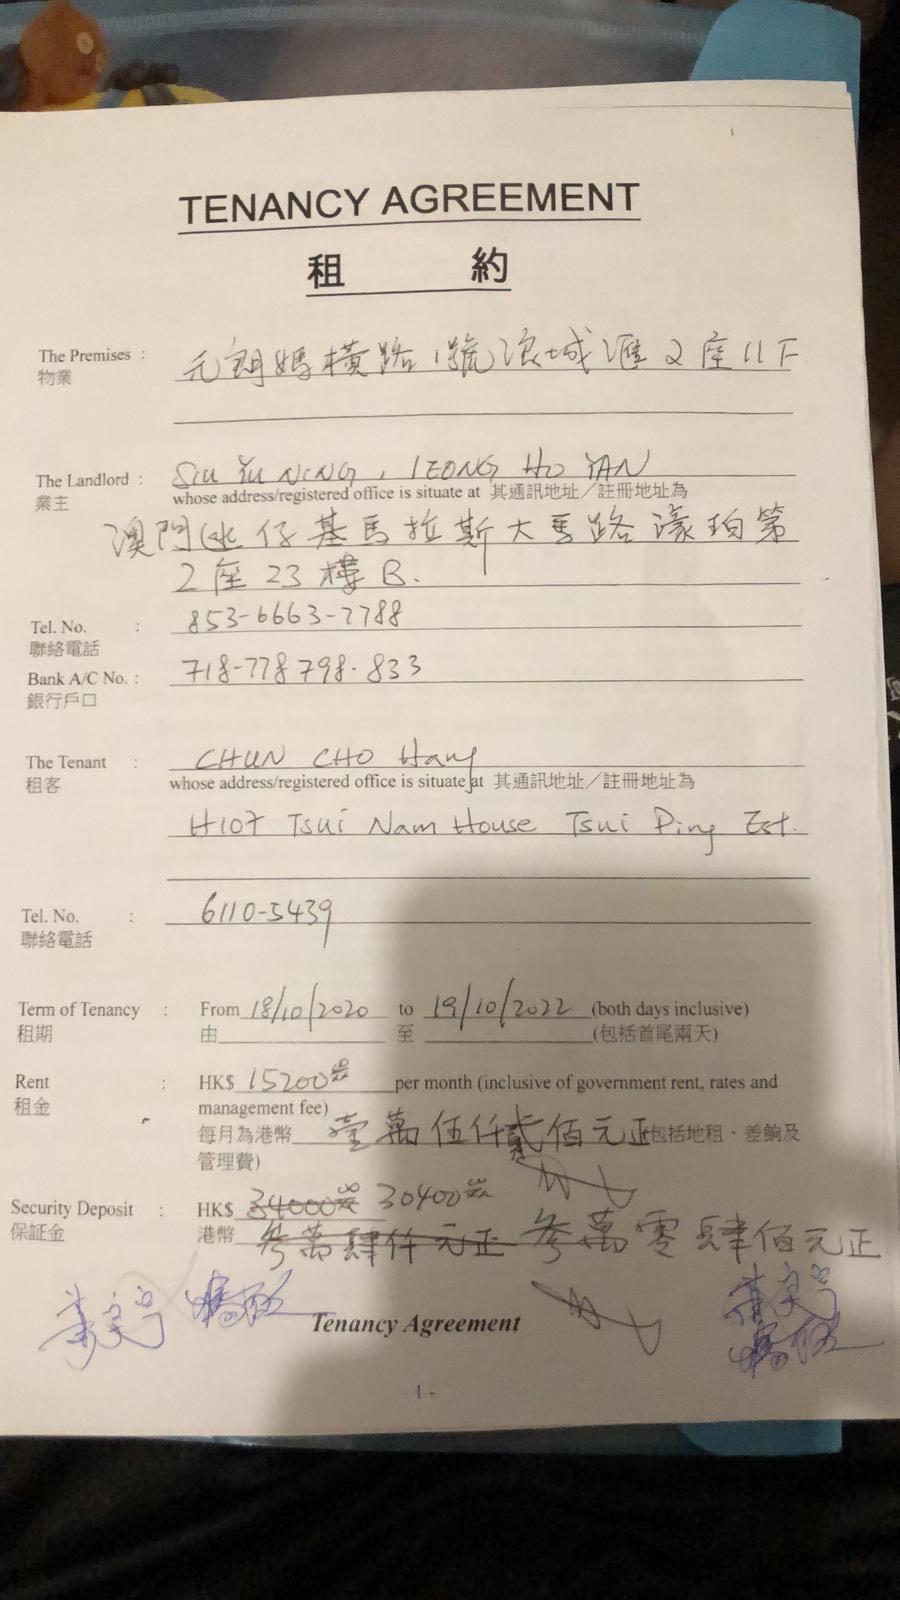 TENANCY AGREEMENT
租 約
The Premises : 元朗媽橫路1號浪城滙2座11F
物業
The Landlord : SIU YU NING, IEONG HO YAN
業主 whose address/registered office is situate at 其通訊地址／註冊地址為
澳門氹仔基馬拉斯大馬路濠珀第
2座23樓B.
Tel. No. : 853-6663-7788
聯絡電話
Bank A/C No. : 718-778798-833
銀行戶口
The Tenant : CHUN CHO Hang
租客 whose address/registered office is situate at 其通訊地址／註冊地址為
H107 Tsui Nam House Tsui Ping Est.
Tel. No. : 6110-5439
聯絡電話
Term of Tenancy : From 18/10/2020 to 19/10/2022 (both days inclusive)
租期 由 至 (包括首尾兩天)
Rent : HK$ 15200 per month (inclusive of government rent, rates and
租金 management fee)
每月為港幣 壹萬伍仟貳佰元正 包括地租、差餉及
管理費)
Security Deposit : HK$ 34000 30400
保証金 港幣 叁萬肆仟元正 叁萬零肆佰元正
Tenancy Agreement
- 1 -